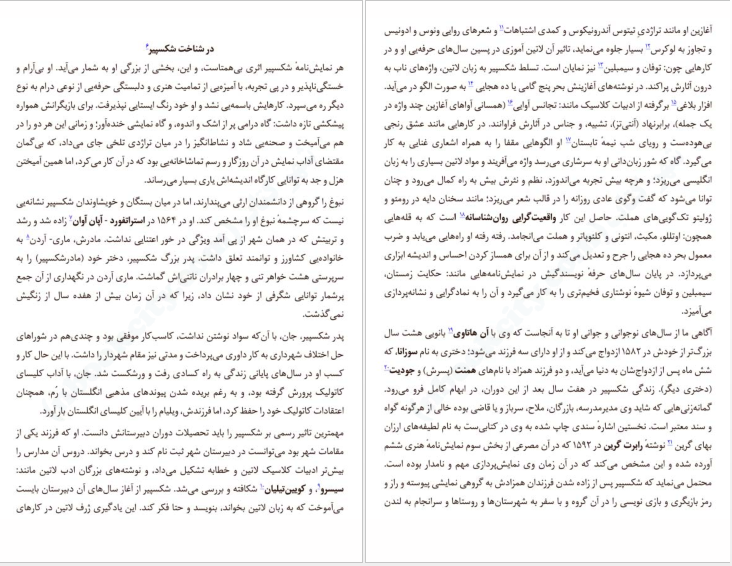 در شناخت شکسپیر۴
هر نمایش‌نامهٔ شکسپیر اثری بی‌همتاست، و این، بخشی از بزرگی او به شمار می‌آید. او بی‌آرام و
خستگی‌ناپذیر و در پی تجربه، با آمیزه‌یی از تمامیت هنری و دلبستگی حرفه‌یی از نوعی درام به نوع
دیگر ره می‌سپرد. کارهایش باسمه‌یی نشد و او خود رنگ ایستایی نپذیرفت. برای بازیگرانش همواره
پیشکشی تازه داشت: گاه درامی پر از اشک و اندوه، و گاه نمایشی خنده‌آور؛ و زمانی هر دو را در
هم می‌آمیخت و صحنه‌یی شاد و نشاط‌انگیز را در میان تراژدی تلخی جای می‌داد، که بی‌گمان
مقتضای آداب نمایش در آن روزگار و رسم تماشاخانه‌یی بود که در آن کار می‌کرد، اما همین آمیختن
هزل و جد به توانایی کارگاه اندیشه‌اش یاری بسیار می‌رساند.
نبوغ را گروهی از دانشمندان ارثی می‌پندارند، اما در میان بستگان و خویشاوندان شکسپیر نشانه‌یی
نیست که سرچشمهٔ نبوغ او را مشخص کند. او در ۱۵۶۴ در استراتفورد - آپان آوان زاده شد و رشد
و تربیتش که در همان شهر از پی آمد ویژگی در خور اعتنایی نداشت. مادرش، ماری- آردن به
خانواده‌یی کشاورز و توانمند تعلق داشت. پدر بزرگ شکسپیر، دختر خود (مادرشکسپیر) را به
سرپرستی هشت خواهر تنی و چهار برادران ناتنی‌اش گماشت. ماری آردن در نگهداری از آن جمع
پرشمار توانایی شگرفی از خود نشان داد، زیرا که در آن زمان بیش از هفده سال از زنگیش
نمی‌گذشت.
پدر شکسپیر، جان، با آن‌که سواد نوشتن نداشت، کاسب‌کار موفقی بود و چندی‌هم در شوراهای
حل اختلاف شهرداری به کار داوری می‌پرداخت و مدتی نیز مقام شهردار را داشت. با این حال کار و
کسب او در سال‌های پایانی زندگی به راه کسادی رفت و ورشکست شد. جان، با آداب کلیسای
کاتولیک پرورش گرفته بود، و به رغم بریده شدن پیوندهای مذهبی انگلستان با رُم، همچنان
اعتقادات کاتولیک خود را حفظ کرد، اما فرزندش، ویلیام را با آیین کلیسای انگلستان بار آورد.
مهمترین تاثیر رسمی بر شکسپیر را باید تحصیلات دوران دبیرستانش دانست. او که فرزند یکی از
مقامات شهر بود می‌توانست در دبیرستان شهر ثبت نام کند و درس بخواند. دروس آن مدارس را
بیش‌تر ادبیات کلاسیک لاتین و خطابه تشکیل می‌داد، و نوشته‌های بزرگان ادب لاتین مانند:
سیسرو۹، و کویین‌تیلیان۱۰ شکافته و بررسی می‌شد. شکسپیر از آغاز سال‌های آن دبیرستان بایست
می‌آموخت که به زبان لاتین بخواند، بنویسد و حتا فکر کند. این یادگیری ژرف لاتین در کارهای
آغازین او مانند تراژدی تیتوس آندرونیکوس و کمدی اشتباهات۱۱ و شعرهای روایی ونوس و ادونیس
و تجاوز به لوکرس۱۲ بسیار جلوه می‌نماید، تاثیر آن لاتین آموزی در پسین سال‌های حرفه‌یی او و در
کارهایی چون: توفان و سیمبلین۱۳ نیز نمایان است. تسلط شکسپیر به زبان لاتین، واژه‌های ناب به
درون آثارش پراکند. در نوشته‌های آغازینش بحرپنج گامی یا ده هجایی ۱۴ به صورت الگو در می‌آید.
افزار بلاغی۱۵ برگرفته از ادبیات کلاسیک مانند: تجانس آوایی۱۶ (همسانی آواهای آغازین چند واژه در
یک جمله)، برابرنهاد (آنتی‌تز)، تشبیه، و جناس در آثارش فراوانند. در کارهایی مانند عشق رنجی
بی‌هوده‌ست و رویای شب نیمهٔ تابستان۱۷ او الگوهایی مقفا را به همراه اشعاری غنایی به کار
می‌گیرد. گاه که شور زبان‌دانی او به سرشاری می‌رسد واژه می‌آفریند و مواد لاتین بسیاری را به زبان
انگلیسی می‌ریزد؛ و هرچه بیش تجربه می‌اندوزد، نظم و نثرش بیش به راه کمال می‌رود و چنان
توانا می‌شود که گفت وگوی عادی روزانه را در قالب شعر می‌ریزد؛ مانند سخنان دایه در رومئو و
ژولیتو تک‌گویی‌های هملت. حاصل این کار واقعیت‌گرایی روان‌شناسانه۱۸ است که به قله‌هایی
همچون: اوتللو، مکبث، آنتونی و کلئوپاتر و هملت می‌انجامد. رفته رفته او راه‌هایی می‌یابد و ضرب
معمول بحر ده هجایی را جرح و تعدیل می‌کند و از آن برای همساز کردن احساس و اندیشه ابزاری
می‌پردازد. در پایان سال‌های حرفهٔ نویسندگیش در نمایش‌نامه‌هایی مانند: حکایت زمستان،
سیمبلین و توفان شیوهٔ نوشتاری فخیم‌تری را به کار می‌گیرد و آن را به نمادگرایی و نشانه‌پردازی
می‌آمیزد.
آگاهی ما از سال‌های نوجوانی و جوانی او تا به آنجاست که وی با آن هاتاوی۱۹ بانویی هشت سال
بزرگ‌تر از خودش در ۱۵۸۲ ازدواج می‌کند و از او دارای سه فرزند می‌شود؛ دختری به نام سوزانا، که
شش ماه پس از ازدواج‌شان به دنیا می‌آید، و دو فرزند همزاد با نام‌های همنت (پسرش) و جودیت۲۰
(دختری دیگر). زندگی شکسپیر در هفت سال بعد از این دوران، در ابهام کامل فرو می‌رود.
گمانه‌زنی‌هایی که شاید وی مدیرمدرسه، بازرگان، ملاح، سرباز و یا قاضی بوده خالی از هرگونه گواه
و سند معتبر است. نخستین اشارهٔ سندی چاپ شده به وی در کتابی‌ست به نام لطیفه‌های ارزان
بهای گرین ۲۱ نوشتهٔ رابرت گرین در ۱۵۹۲ که در آن مصرعی از بخش سوم نمایش‌نامهٔ هنری ششم
آورده شده و این مشخص می‌کند که در آن زمان وی نمایش‌پردازی مهم و نامدار بوده است.
محتمل می‌نماید که شکسپیر پس از زاده شدن فرزندان همزادش به گروهی نمایشی پیوسته و راز و
رمز بازیگری و بازی نویسی را در آن گروه و با سفر به شهرستان‌ها و روستاها و سرانجام به لندن